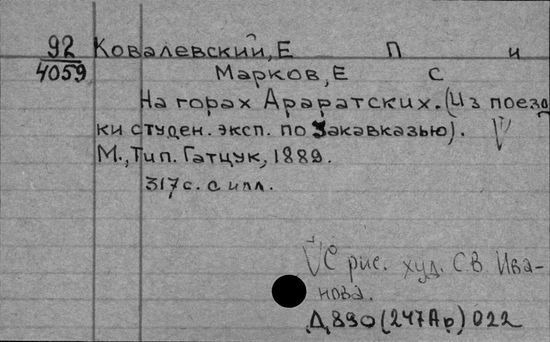 92
4059
Ковалевский, Е П и
Марков, Е С
На горах Араратских. (Из поезд
ки студен. эксп. по Закавказью).
М., Тип. Гатцук, 1889.
317 с. с илл.
С рис. худ. С.В. Ива-
нова.
Д890(247Ар)022